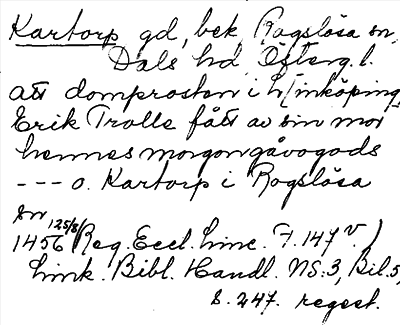 Kartorp gd, bek Rogslösa sn,
Dals hd, Österg. l.
att domprosten i Linköping
Erik Trolle fått av sin mor
hennes morgongåvogods
--- o. Kartorp i Rogslösa
sn
1456 125/8 (Reg. Eccl. Linc. F. 147 v.)
Link. Bibl. Handl. NS:3, Bil. 5,
S. 247. regest.